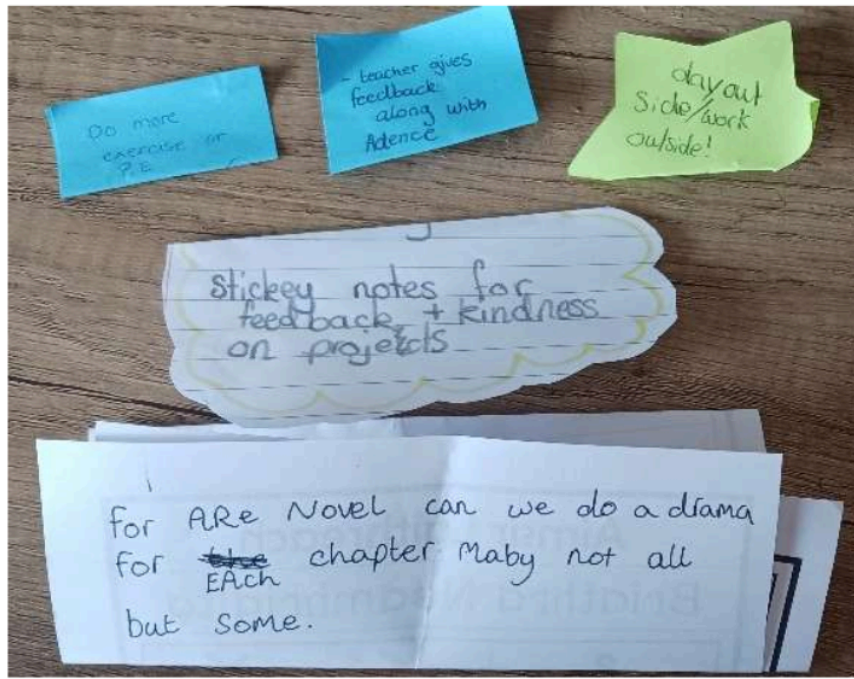 Do more
exercise or
P.E
- teacher gives
feedback
along with
Adence
day out
Side/work
outside!
Stickey notes for
feedback + kindness
on projects
for ARe Novel can we do a drama
for EAch chapter. Maby not all
but some.